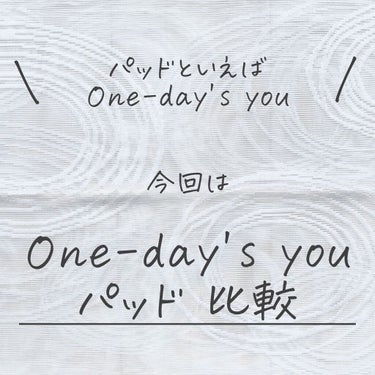 パッドといえば
One-day's you
今回は
One-day's you
パッド 比較